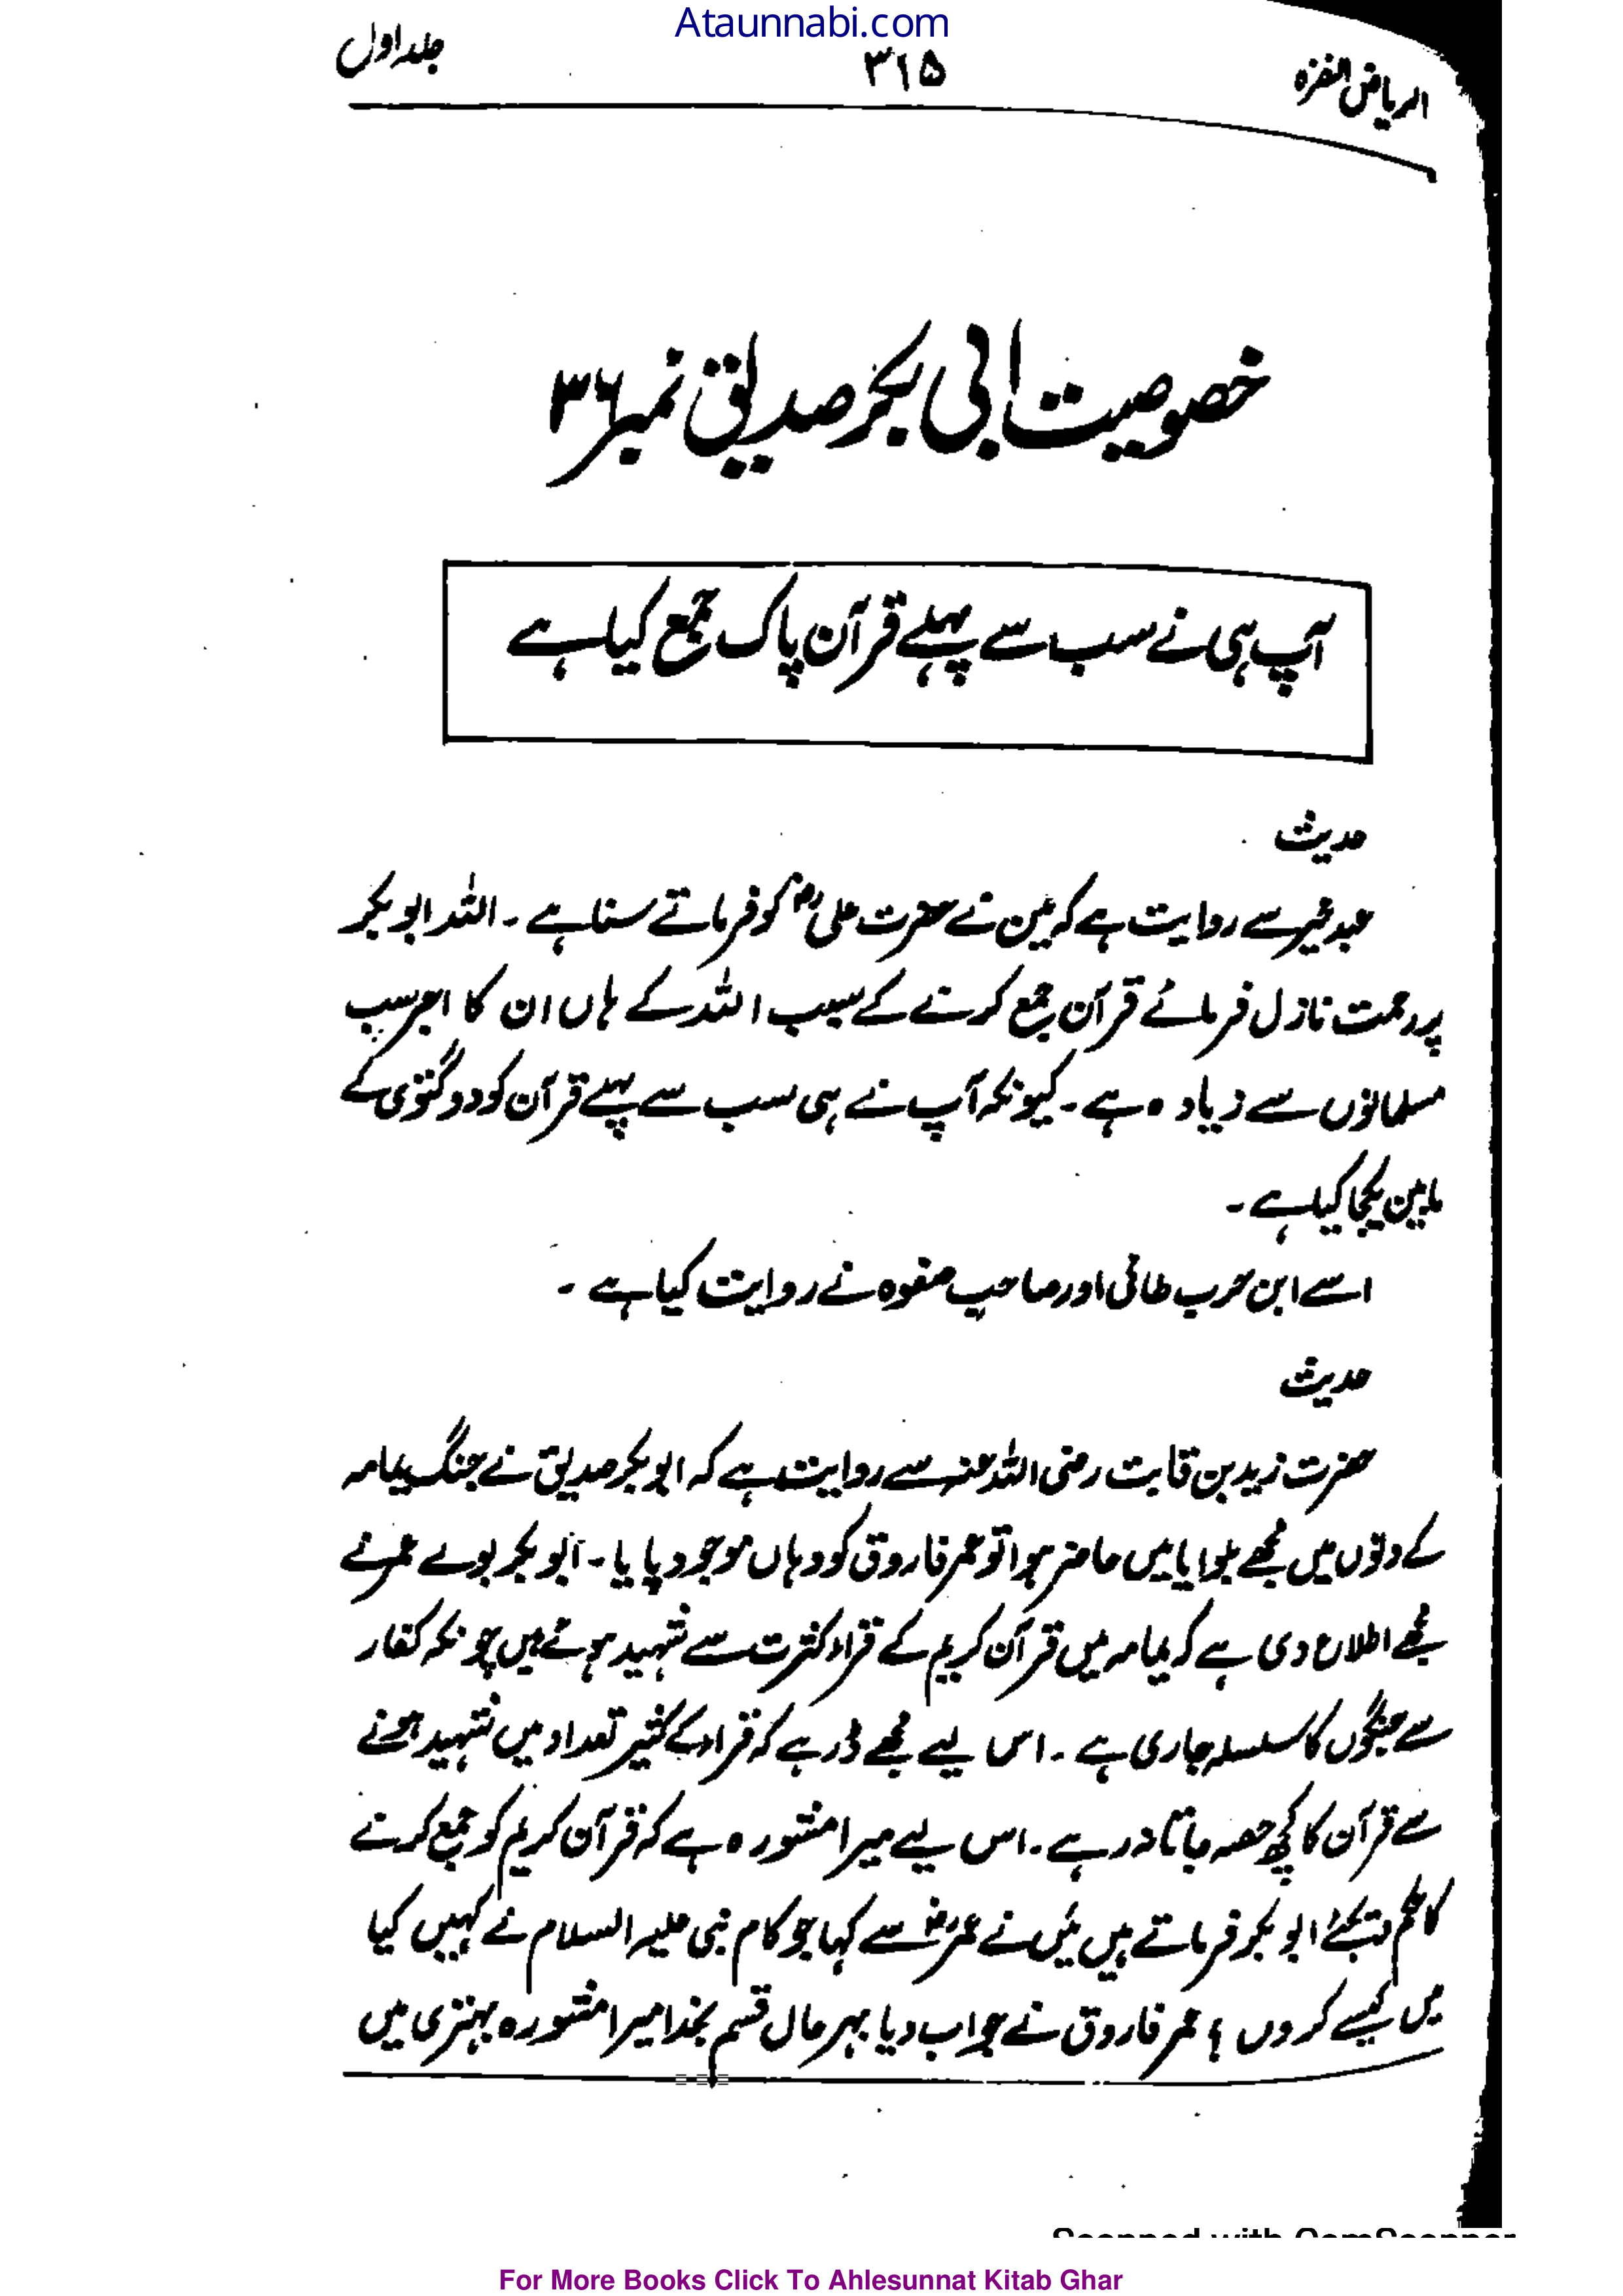 Ataunnabi.com
الریاض النضرہ
۳۱۵
جلد اول
خصوصیت ابی بکر صدیق نمبر ۳۶
آپ ہی نے سب سے پہلے قرآن پاک جمع کیا ہے
حدیث
عبد خیر سے روایت ہے کہ میں نے حضرت علیؓ کو فرماتے سنا ہے ۔ اللہ ابو بکر
پر رحمت نازل فرمائے قرآن جمع کرنے کے سبب اللہ کے ہاں ان کا اجر سب
مسلمانوں سے زیادہ ہے ۔ کیونکہ آپ نے ہی سب سے پہلے قرآن کو دو گتوں کے
مابین یکجا کیا ہے ۔
اسے ابن حرب طائی اور صاحب صفوہ نے روایت کیا ہے ۔
حدیث
حضرت زید بن ثابت رضی اللہ عنہ سے روایت ہے کہ ابو بکر صدیق نے جنگ یمامہ
کے دنوں میں مجھے بلوایا میں حاضر ہوا تو عمر فاروق کو وہاں موجود پایا ۔ ابو بکر بولے عمر نے
مجھے اطلاع دی ہے کہ یمامہ میں قرآن کریم کے قراء کثرت سے شہید ہوئے ہیں چونکہ کفار
سے جنگوں کا سلسلہ جاری ہے ۔ اس لیے مجھے ڈر ہے کہ قراء کے کثیر تعداد میں شہید ہونے
سے قرآن کا کچھ حصہ جاتا نہ رہے ۔ اس لیے میرا مشورہ ہے کہ قرآن کریم کو جمع کرنے
کا حکم دیجئے ابو بکر فرماتے ہیں میں نے عمرؓ سے کہا جو کام نبی علیہ السلام نے نہیں کیا
میں کیسے کروں ؟ عمر فاروق نے جواب دیا بہر حال قسم بخدا میرا مشورہ بہتری میں
Scanned with CamScanner
For More Books Click To Ahlesunnat Kitab Ghar